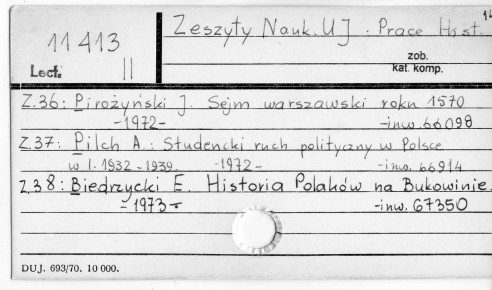 14
Zeszyty Nauk. UJ. Prace Hist.
11413
Lect. II
zob.
kat. komp.
Z.36: Pirożyński J. Sejm warszawski roku 1570
-1972- -inw. 66098
Z.37: Pilch A.: Studencki ruch polityczny w Polsce
w l. 1932-1939. -1972- -inw. 66914
Z.38: Biedrzycki E. Historia Polaków na Bukowinie
-1973- -inw. 67350
DUJ. 693/70. 10 000.